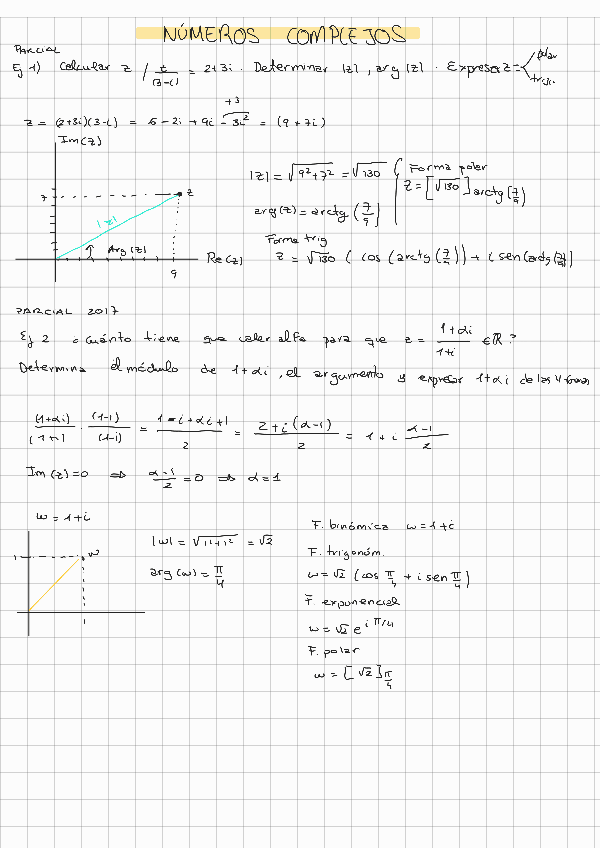 NÚMEROS COMPLEJOS
PARCIAL
Ej 1) Calcular z / z/(3-i) = 2+3i. Determinar |z|, arg(z). Expresar z = polar
trigo.
+3
z = (2+3i)(3-i) = 6-2i+9i-3i² = (9+7i)
Im(z)
7
z
|z|
Arg(z)
Re(z)
9
|z| = √9²+7² = √130
arg(z) = arctg(7/9)
Forma polar
z = [√130] arctg(7/9)
Forma trig
z = √130 (cos(arctg(7/9)) + i sen(arctg(7/9)))
PARCIAL 2017
Ej 2 cuánto tiene que valer alfa para que z = 1+αi/1+i ∈ ℝ?
Determina el módulo de 1+αi, el argumento y expresar 1+αi de las 4 formas
(1+αi)/(1+i) · (1-i)/(1-i) = 1-i+αi+1/2 = 2+i(α-1)/2 = 1+i α-1/2
Im(z)=0 ⇒ α-1/2 = 0 ⇒ α=1
w = 1+i
1
w
1
|w| = √1²+1² = √2
arg(w) = π/4
F. binómica w = 1+i
F. trigonóm.
w = √2 (cos π/4 + i sen π/4)
F. exponencial
w = √2 e^iπ/4
F. polar
w = [√2] π/4